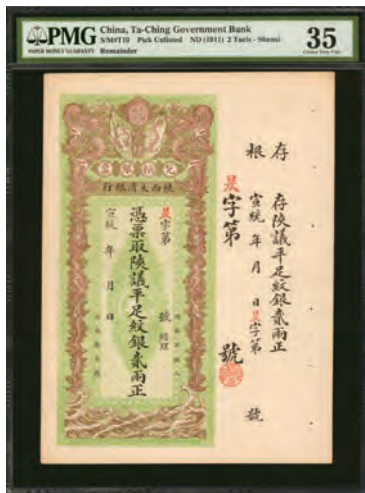 PMG
PAPER MONEY GUARANTY
China, Ta-Ching Government Bank
S/M#T10 Pick Unlisted ND (1911) 2 Taels - Shensi
Remainder
35
存根
存陝議平足紋銀貳兩正
宣統 年 月 日 昃字第 號
昃字第 號
兌換銀票
陝西大清銀行
昃字第 號 經理
憑票取陝議平足紋銀貳兩正
宣統 年 月 日